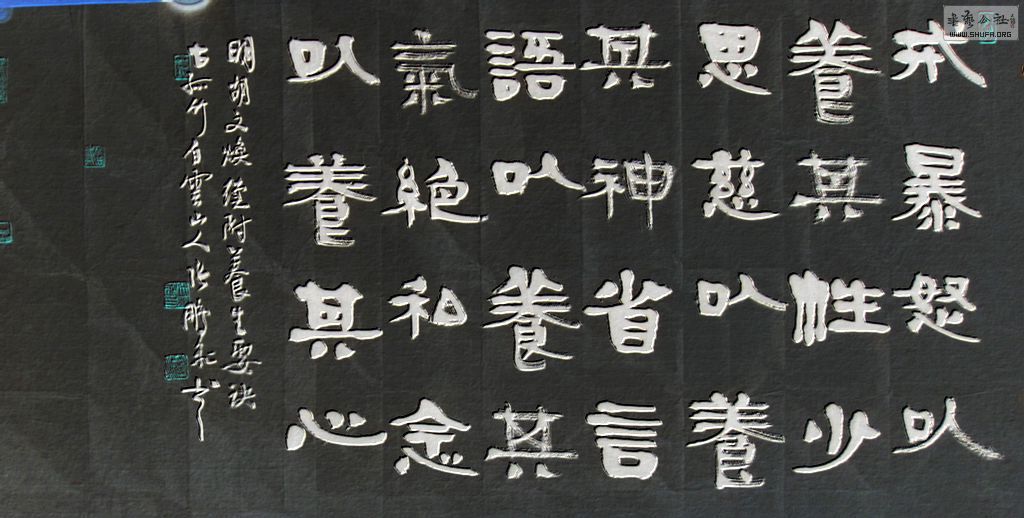 戒暴怒以
養其性少
思慈以養
其神省言
語以養其
氣絕私念
以養其心
明胡文煥附養生要訣
古孤竹白雲山人張勝書
書藝公社
WWW.SHUFA.ORG